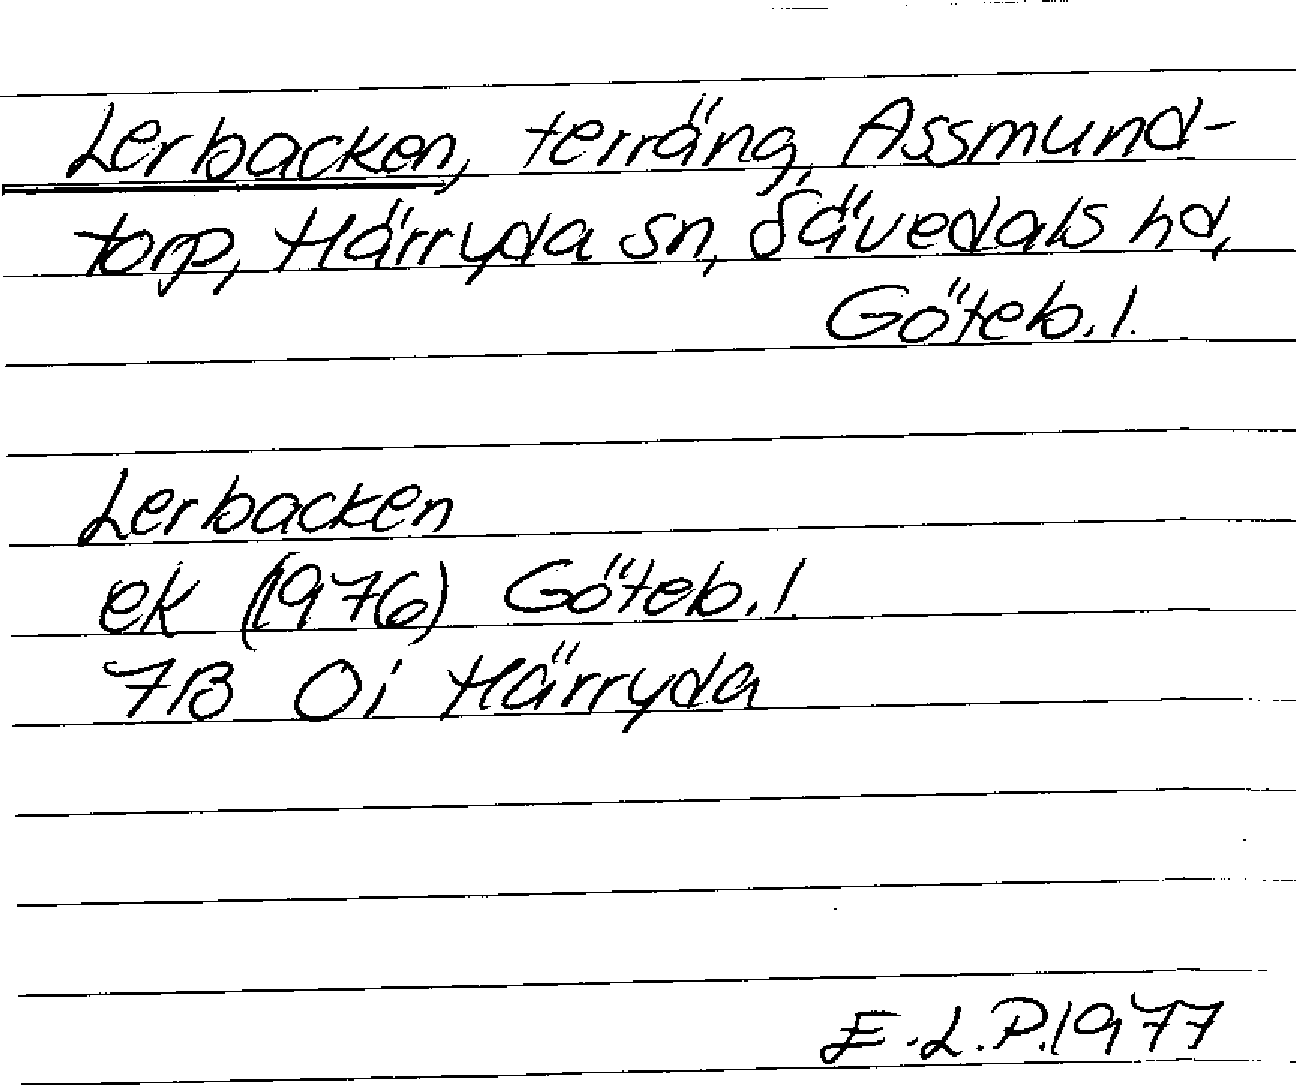 Lerbacken, terräng, Assmund-
torp, Härryda sn, Sävedals hd,
Göteb. l.
Lerbacken
ek (1976) Göteb. l.
7B 0i Härryda
E.L.P. 1977